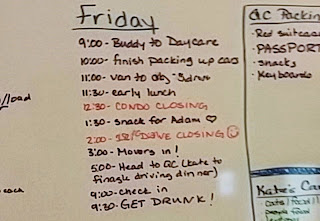 Friday
9:00 - Buddy to Daycare
10:00 - finish packing up cars
11:00 - van to
11:30 - early lunch
12:30 - CONDO CLOSING
1:30 - snack for Adam ♡
2:00 - CLOSING
3:00 - Movers in!
5:00 - Head to QC (Kate to
finagle driving dinner)
9:00 - check in
9:30 - GET DRUNK!
/load
QC Packin
• Red suitcase
• PASSPORT
• snacks
• Keyboards
Kate's Car